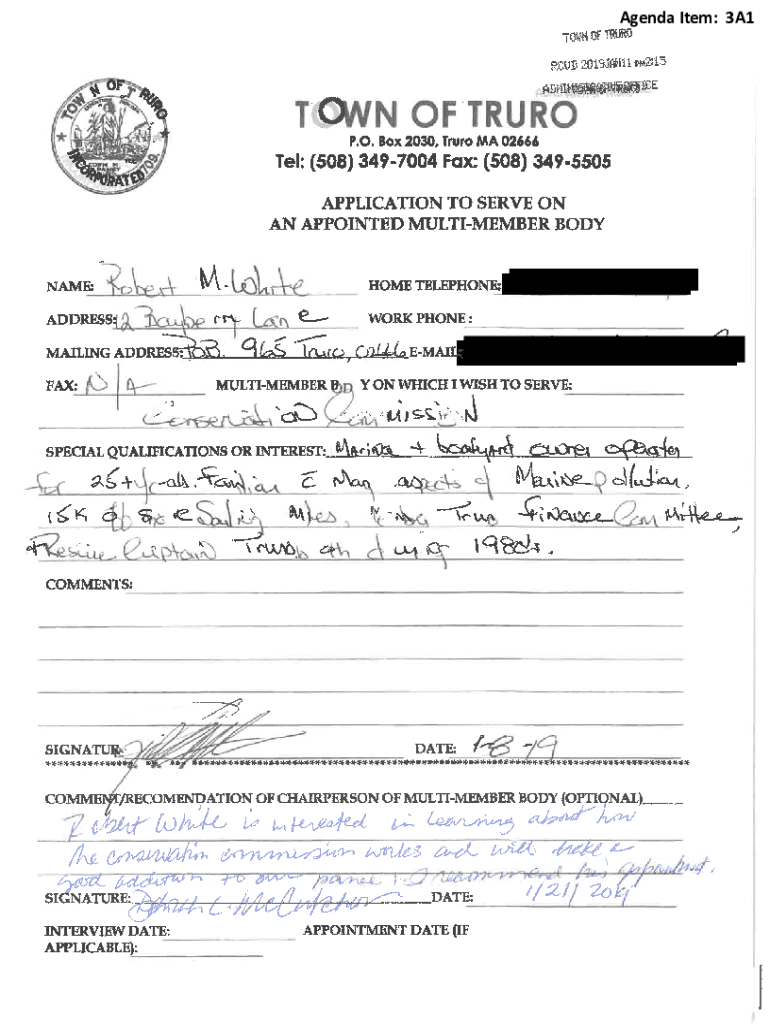 Agenda Item: 3A1
TOWN OF TRURO
RCVD 2019JAN11 PM2:15
ADMINISTRATIVE OFFICE
TOWN OF TRURO
INCORPORATED 1709
TOWN OF TRURO
P.O. Box 2030, Truro MA 02666
Tel: (508) 349-7004 Fax: (508) 349-5505
APPLICATION TO SERVE ON
AN APPOINTED MULTI-MEMBER BODY
NAME: Robert M. White HOME TELEPHONE:
ADDRESS: 2 Bayberry Lane WORK PHONE :
MAILING ADDRESS: P.O.B. 965 Truro, 02666 E-MAIL:
FAX: N/A MULTI-MEMBER BODY ON WHICH I WISH TO SERVE:
Conservation Commission
SPECIAL QUALIFICATIONS OR INTEREST: Marina + boatyard owner operator
for 25+ yrs. Familiar Many aspects of Marine pollution.
15K offshore Sailing Miles, Truro Finance Committee,
+ Rescue Captain Truro during 1980s.
COMMENTS:
SIGNATURE: DATE: 1-8-19
COMMENT/RECOMENDATION OF CHAIRPERSON OF MULTI-MEMBER BODY (OPTIONAL)
Robert White is interested in learning about how
the conservation commission works and will make a
good addition to our panel. I recommend his appointment.
SIGNATURE: Deborah L. McCutcheon DATE: 1/21/2019
INTERVIEW DATE: APPOINTMENT DATE (IF
APPLICABLE):